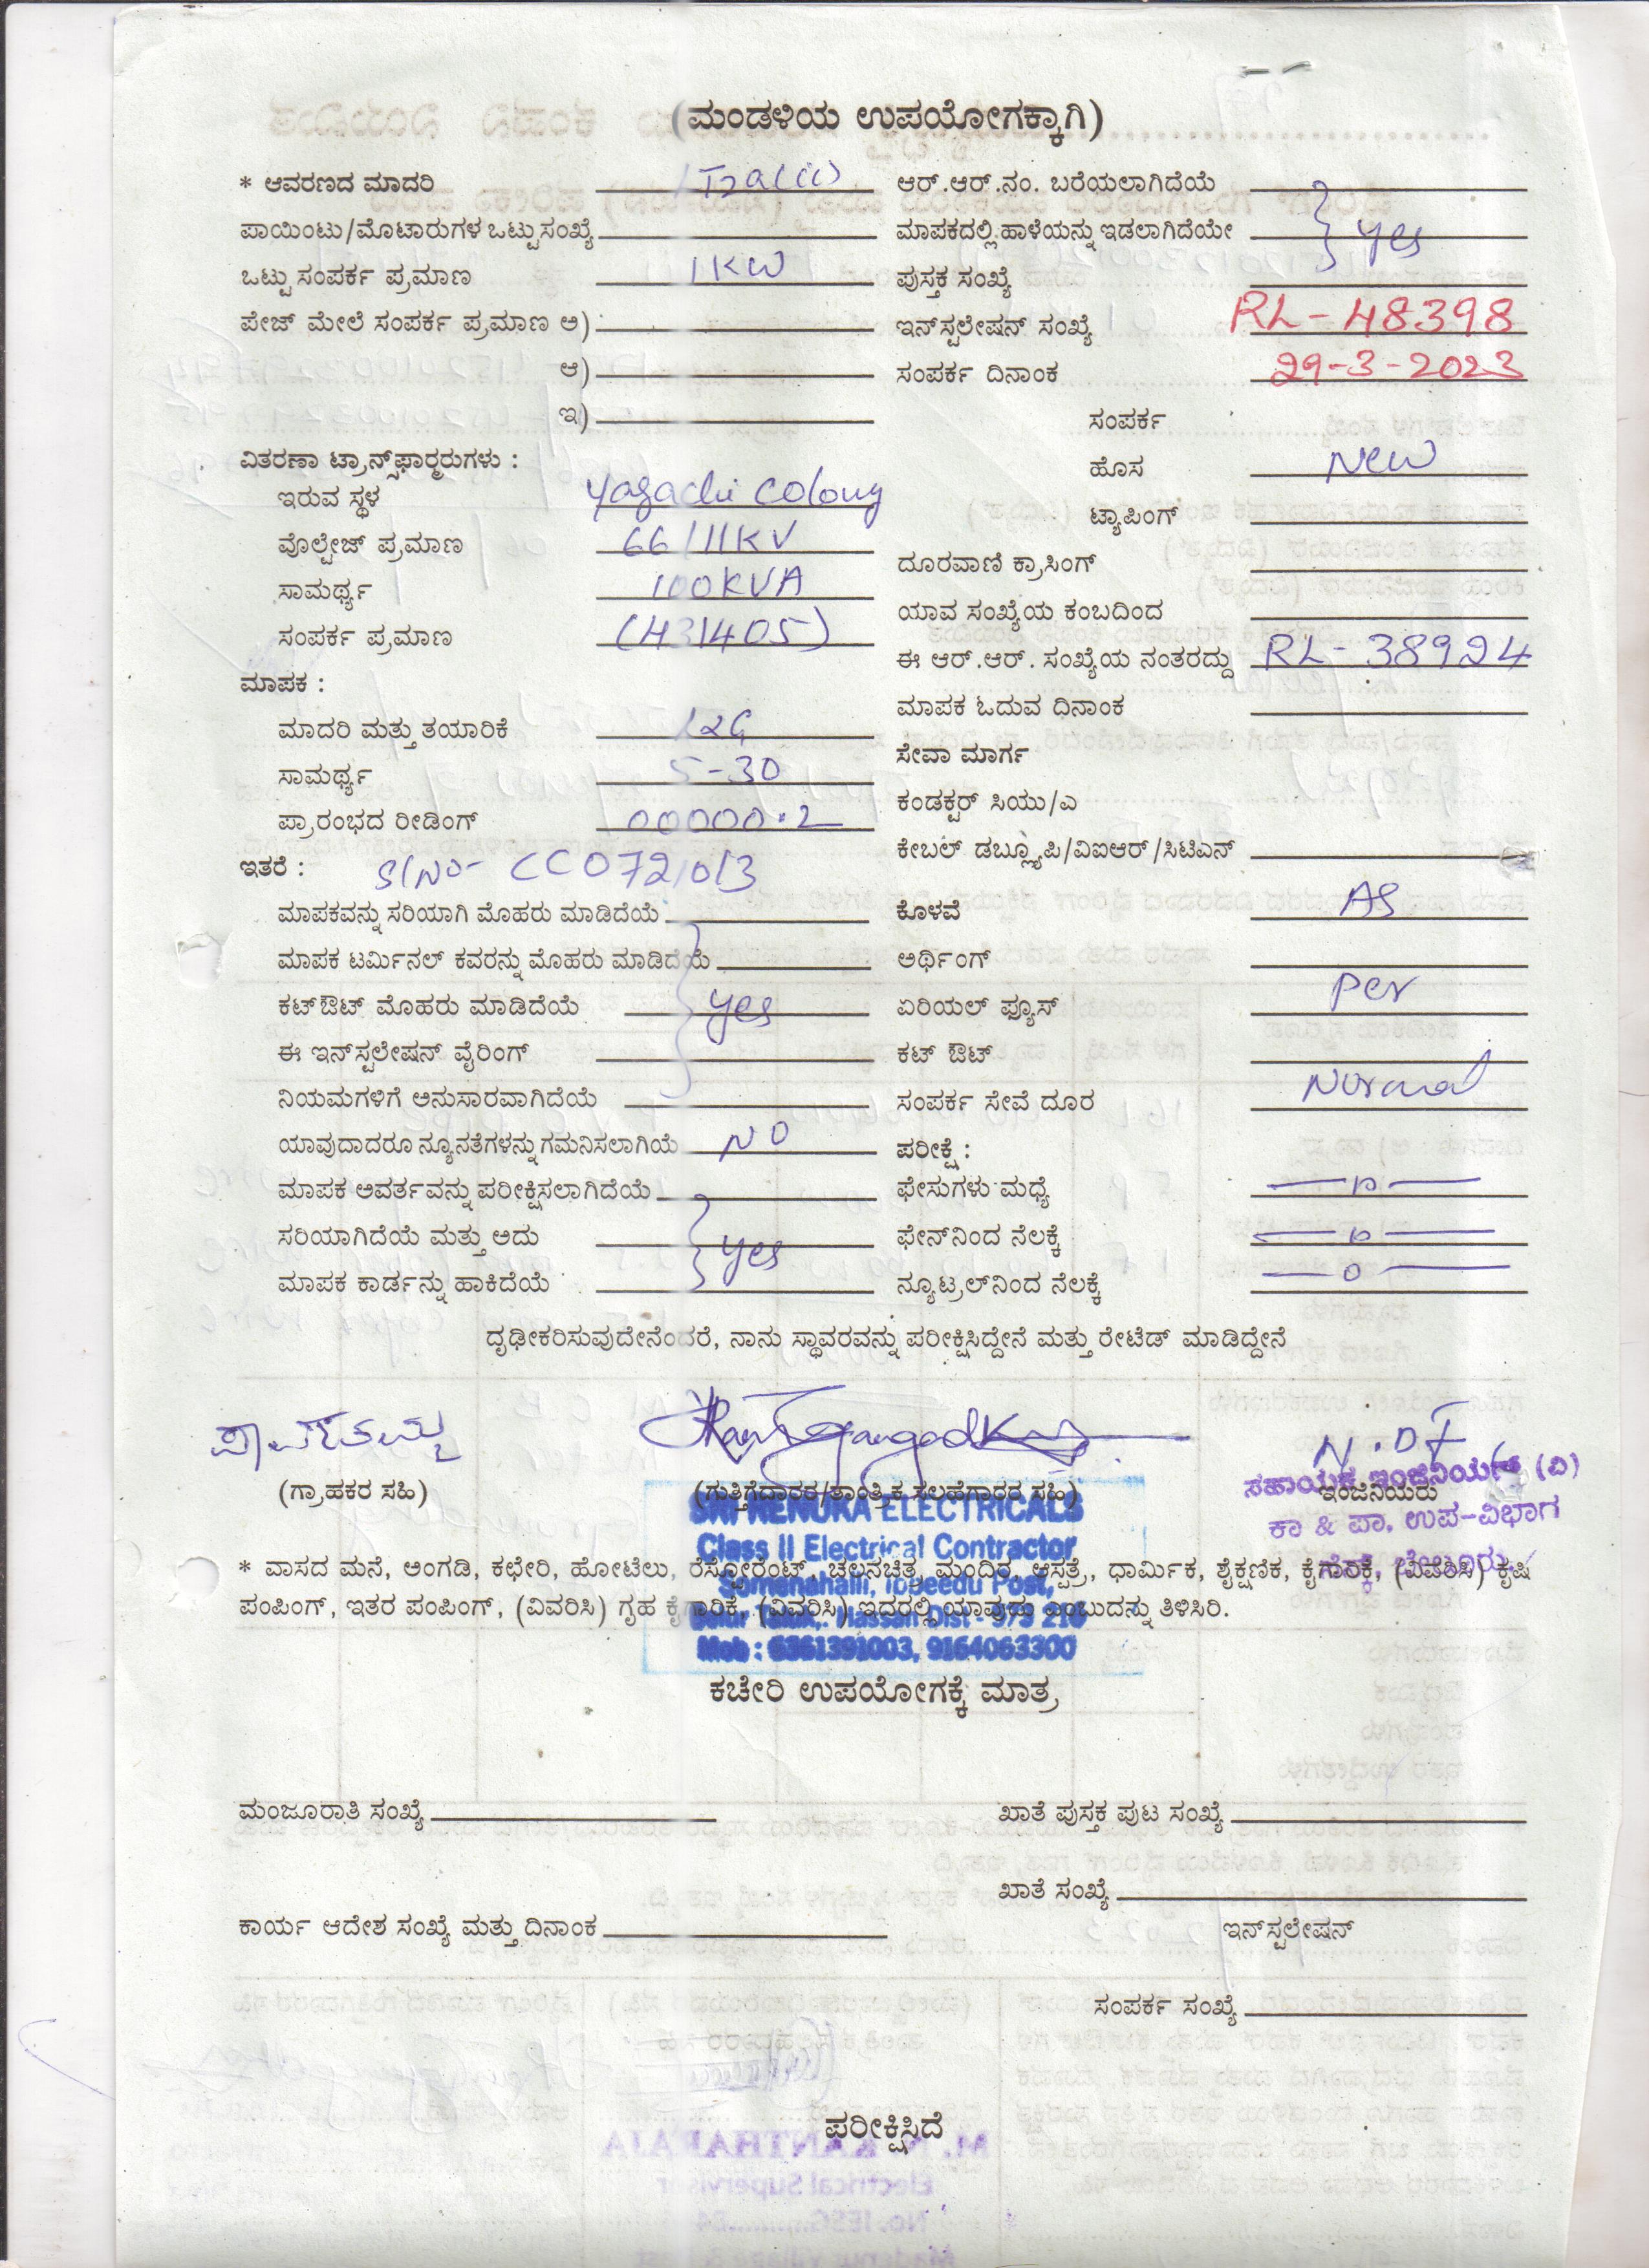 (ಮಂಡಳಿಯ ಉಪಯೋಗಕ್ಕಾಗಿ)
* ಆವರಣದ ಮಾದರಿ
ಪಾಯಿಂಟು/ಮೊಟಾರುಗಳ ಒಟ್ಟು ಸಂಖ್ಯೆ
ಒಟ್ಟು ಸಂಪರ್ಕ ಪ್ರಮಾಣ 1KW
ಪೇಜ್ ಮೇಲೆ ಸಂಪರ್ಕ ಪ್ರಮಾಣ ಅ)
ಆ)
ಇ)
ವಿತರಣಾ ಟ್ರಾನ್ಸ್‌ಫಾರ್‍ಮರುಗಳು :
ಇರುವ ಸ್ಥಳ Yagachi Colony
ವೊಲ್ಟೇಜ್ ಪ್ರಮಾಣ 66/11KV
ಸಾಮರ್ಥ್ಯ 100KVA
ಸಂಪರ್ಕ ಪ್ರಮಾಣ (H31405)
ಮಾಪಕ :
ಮಾದರಿ ಮತ್ತು ತಯಾರಿಕೆ L&G
ಸಾಮರ್ಥ್ಯ 5-30
ಪ್ರಾರಂಭದ ರೀಡಿಂಗ್ 00000.2
ಇತರೆ : Sl No- CC0721013
ಮಾಪಕವನ್ನು ಸರಿಯಾಗಿ ಮೊಹರು ಮಾಡಿದೆಯೆ
ಮಾಪಕ ಟರ್ಮಿನಲ್ ಕವರನ್ನು ಮೊಹರು ಮಾಡಿದೆಯೆ
ಕಟ್‌ಔಟ್ ಮೊಹರು ಮಾಡಿದೆಯೆ yes
ಈ ಇನ್‌ಸ್ಟಲೇಷನ್ ವೈರಿಂಗ್
ನಿಯಮಗಳಿಗೆ ಅನುಸಾರವಾಗಿದೆಯೆ
ಯಾವುದಾದರೂ ನ್ಯೂನತೆಗಳನ್ನು ಗಮನಿಸಲಾಗಿಯೆ NO
ಮಾಪಕ ಅವರ್ತವನ್ನು ಪರೀಕ್ಷಿಸಲಾಗಿದೆಯೆ
ಸರಿಯಾಗಿದೆಯೆ ಮತ್ತು ಅದು yes
ಮಾಪಕ ಕಾರ್ಡನ್ನು ಹಾಕಿದೆಯೆ
ಆರ್.ಆರ್.ನಂ. ಬರೆಯಲಾಗಿದೆಯೆ
ಮಾಪಕದಲ್ಲಿ ಹಾಳೆಯನ್ನು ಇಡಲಾಗಿದೆಯೇ yes
ಪುಸ್ತಕ ಸಂಖ್ಯೆ
ಇನ್‌ಸ್ಟಲೇಷನ್ ಸಂಖ್ಯೆ RL-48398
ಸಂಪರ್ಕ ದಿನಾಂಕ 29-3-2023
ಸಂಪರ್ಕ
ಹೊಸ New
ಟ್ಯಾಪಿಂಗ್
ದೂರವಾಣಿ ಕ್ರಾಸಿಂಗ್
ಯಾವ ಸಂಖ್ಯೆಯ ಕಂಬದಿಂದ
ಈ ಆರ್.ಆರ್. ಸಂಖ್ಯೆಯ ನಂತರದ್ದು RL-38924
ಮಾಪಕ ಓದುವ ದಿನಾಂಕ
ಸೇವಾ ಮಾರ್ಗ
ಕಂಡಕ್ಟರ್ ಸಿಯು/ಎ
ಕೇಬಲ್ ಡಬ್ಲ್ಯೂಪಿ/ವಿಐಆರ್/ಸಿಟಿಎನ್
ಕೊಳವೆ AS
ಅರ್ಥಿಂಗ್
ಏರಿಯಲ್ ಫ್ಯೂಸ್ Per
ಕಟ್ ಔಟ್
ಸಂಪರ್ಕ ಸೇವೆ ದೂರ Normal
ಪರೀಕ್ಷೆ :
ಫೇಸುಗಳು ಮಧ್ಯೆ
ಫೇಸ್‌ನಿಂದ ನೆಲಕ್ಕೆ
ನ್ಯೂಟ್ರಲ್‌ನಿಂದ ನೆಲಕ್ಕೆ
ದೃಢೀಕರಿಸುವುದೇನೆಂದರೆ, ನಾನು ಸ್ಥಾವರವನ್ನು ಪರೀಕ್ಷಿಸಿದ್ದೇನೆ ಮತ್ತು ರೇಟೆಡ್ ಮಾಡಿದ್ದೇನೆ
(ಗ್ರಾಹಕರ ಸಹಿ)
(ಗುತ್ತಿಗೆದಾರರ/ತಾಂತ್ರಿಕ ಸಲಹೆಗಾರರ ಸಹಿ)
ಇಂಜಿನಿಯರು
ಸಹಾಯಕ ಇಂಜಿನಿಯರ್ (ವಿ)
ಕಾ & ಪಾ. ಉಪ-ವಿಭಾಗ
SRI RENUKA ELECTRICALS
Class II Electrical Contractor
Somanahalli, Ibbeedu Post,
Belur Taluk, Hassan Dist - 573 216
Mob : 6361391003, 9164063300
* ವಾಸದ ಮನೆ, ಅಂಗಡಿ, ಕಛೇರಿ, ಹೋಟೆಲು, ರೆಸ್ಟೋರೆಂಟ್, ಚಲನಚಿತ್ರ ಮಂದಿರ, ಆಸ್ಪತ್ರೆ, ಧಾರ್ಮಿಕ, ಶೈಕ್ಷಣಿಕ, ಕೈಗಾರಿಕೆ, (ವಿವರಿಸಿ) ಕೃಷಿ
ಪಂಪಿಂಗ್, ಇತರ ಪಂಪಿಂಗ್, (ವಿವರಿಸಿ) ಗೃಹ ಕೈಗಾರಿಕೆ, (ವಿವರಿಸಿ) ಇದರಲ್ಲಿ ಯಾವುದು ಎಂಬುದನ್ನು ತಿಳಿಸಿರಿ.
ಕಚೇರಿ ಉಪಯೋಗಕ್ಕೆ ಮಾತ್ರ
ಮಂಜೂರಾತಿ ಸಂಖ್ಯೆ
ಖಾತೆ ಪುಸ್ತಕ ಪುಟ ಸಂಖ್ಯೆ
ಖಾತೆ ಸಂಖ್ಯೆ
ಕಾರ್ಯ ಆದೇಶ ಸಂಖ್ಯೆ ಮತ್ತು ದಿನಾಂಕ
ಇನ್‌ಸ್ಟಲೇಷನ್
ಸಂಪರ್ಕ ಸಂಖ್ಯೆ
ಪರೀಕ್ಷಿಸಿದೆ